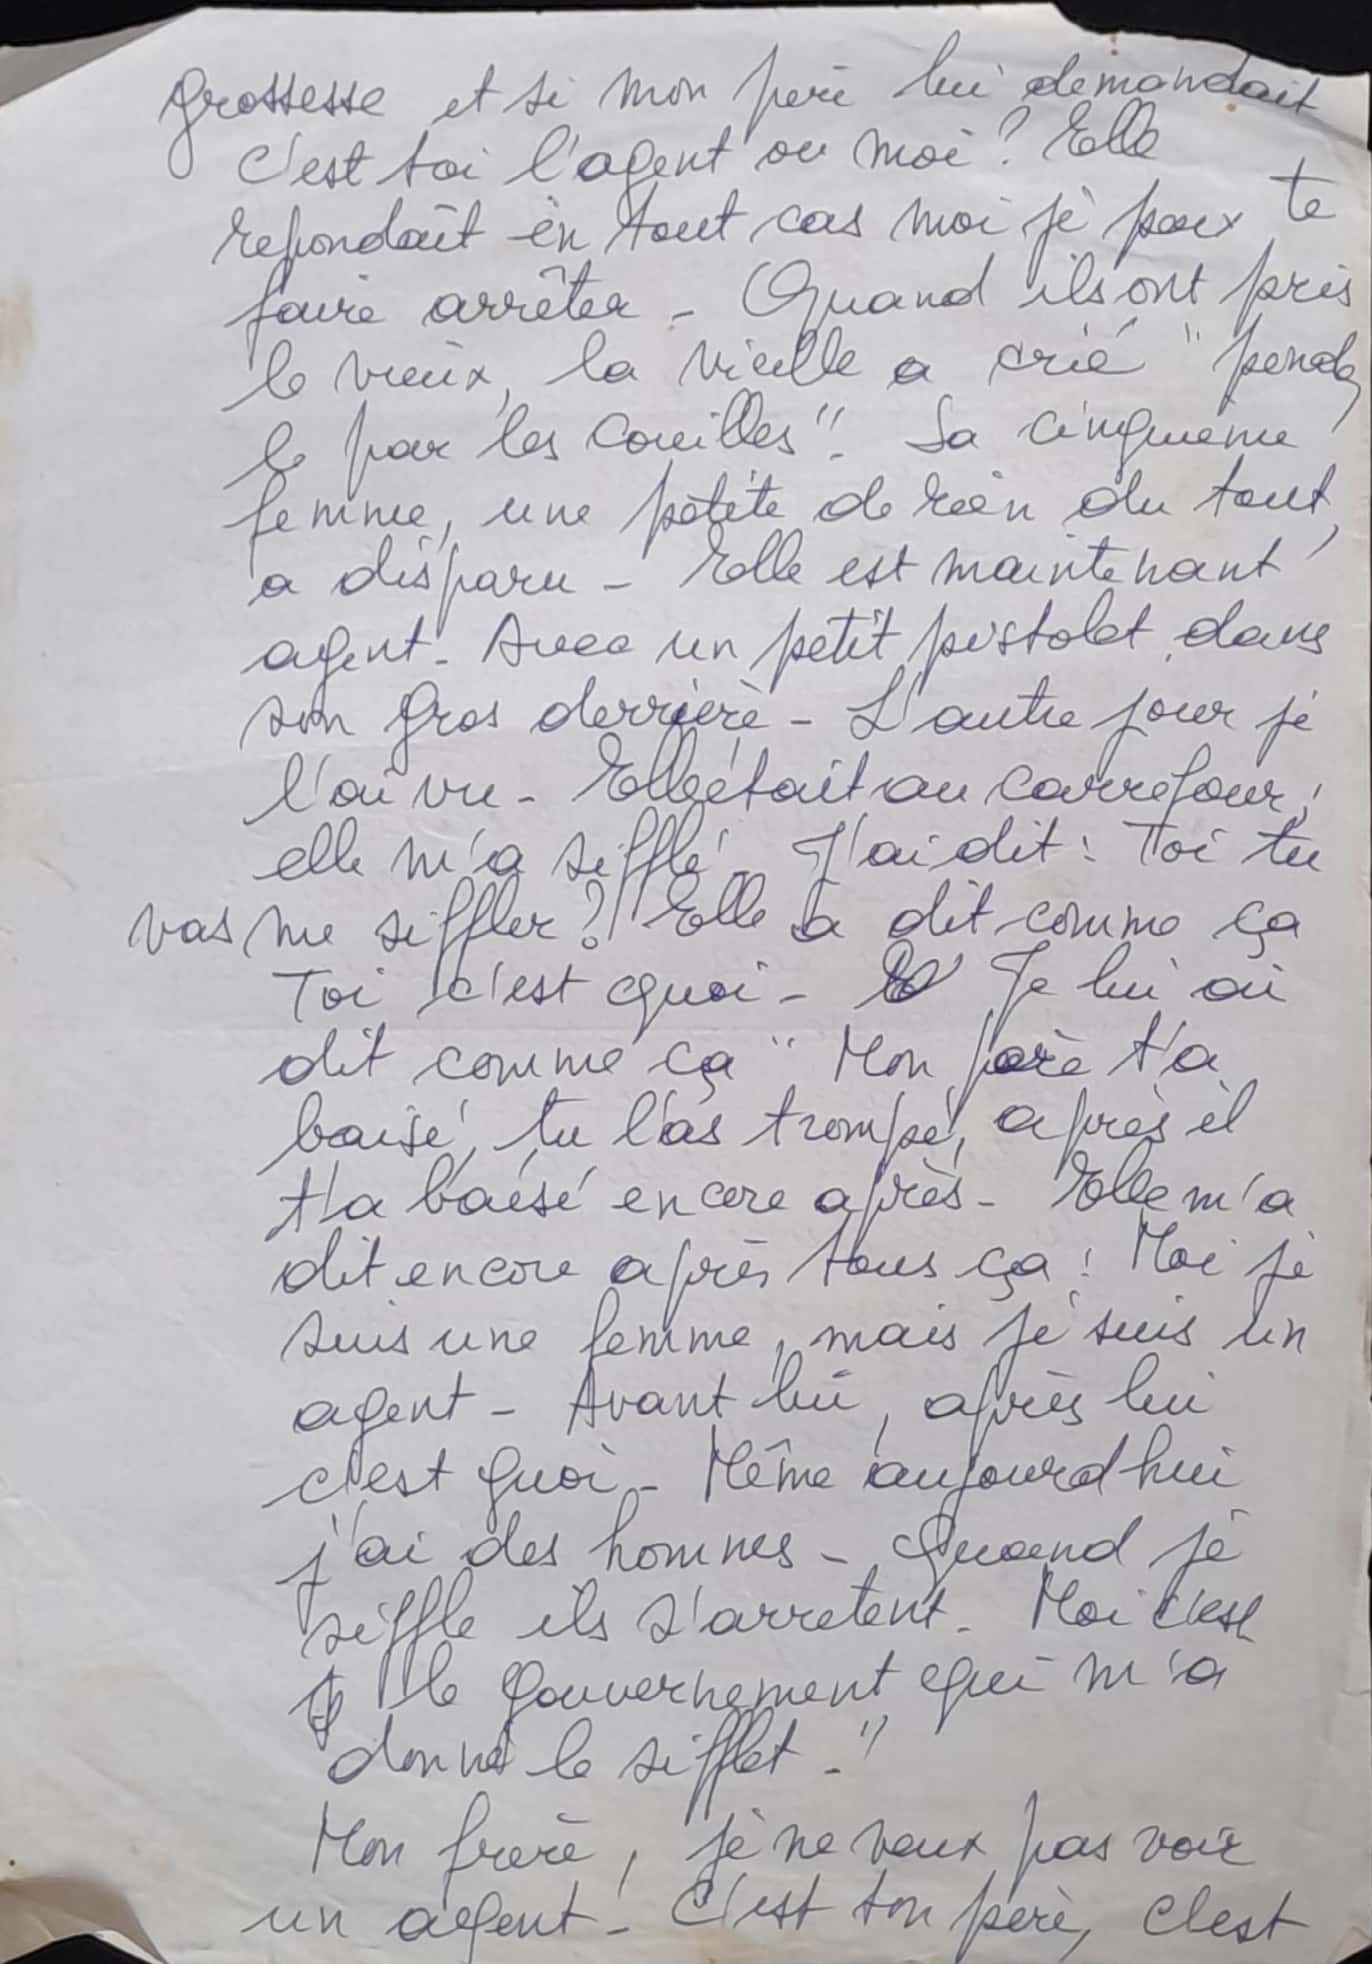 grossesse et si mon père lui demandait
c'est toi l'agent ou moi ? Elle
repondait en tout cas moi je peux te
faire arrêter - Quand ils ont pris
le vieux, la vieille a crié "pendez
le par les couilles". Sa cinquieme
femme, une petite de rien du tout,
a disparu - Elle est maintenant
agent - Avec un petit pistolet dans
son gros derrière - L'autre jour je
l'ai vu - Elle était au carrefour,
elle m'a sifflé - J'ai dit : Toi tu
vas me siffler ? Elle a dit comme ça
Toi c'est quoi - Je lui ai
dit comme ça " Mon père t'a
baisé, tu l'as trompé, après il
t'a baisé encore après - Elle m'a
dit encore après tous ça : Moi je
suis une femme, mais je suis un
agent - Avant lui, après lui
c'est quoi - Même aujourd'hui
j'ai des hommes - Quand je
siffle ils s'arretent - Moi c'est
le gouvernement qui m'a
donné le sifflet - "
Mon frère, je ne veux pas voir
un agent - C'est ton père, c'est